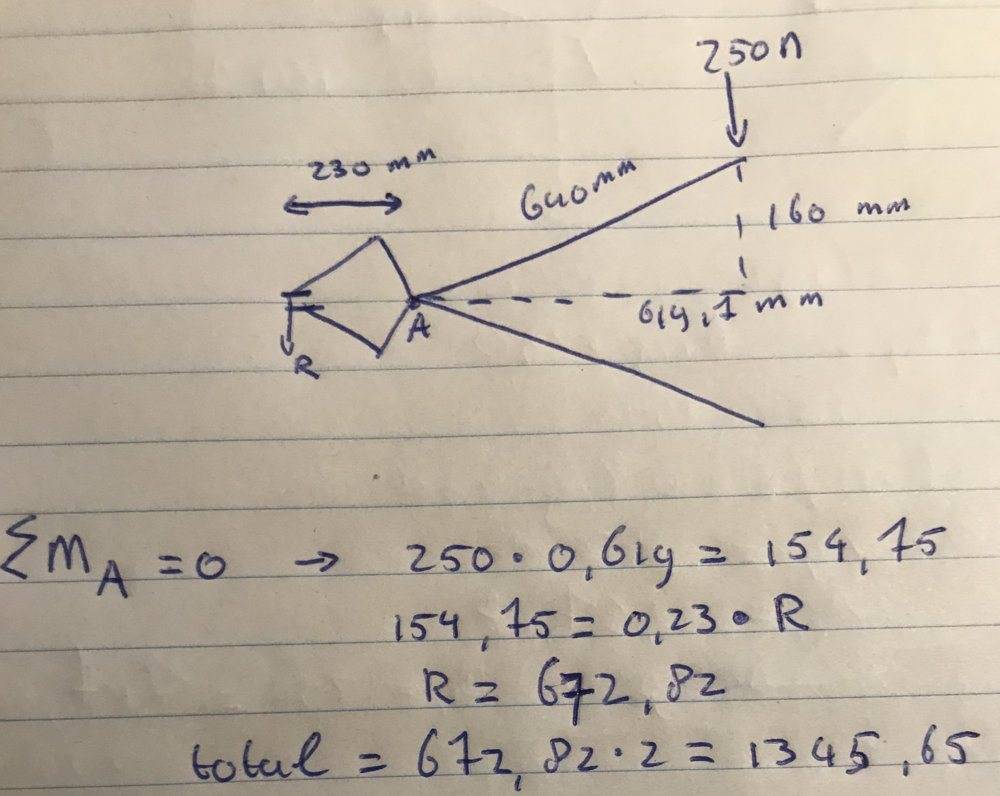 250n
230 mm
640mm
160 mm
619,1 mm
A
R
ΣM_A = 0 → 250 · 0,619 = 154,75
154,75 = 0,23 · R
R = 672,82
total = 672,82 · 2 = 1345,65